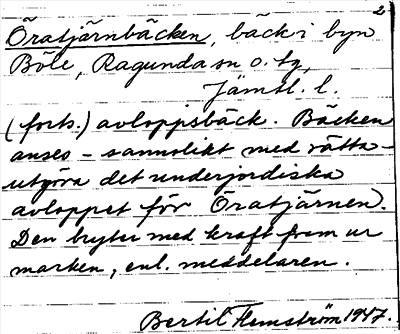 2
Öratjärnbäcken, bäck i byn
Böle, Ragunda sn o. tg,
Jämtl. l.
(forts.) avloppsbäck. Bäcken
anses – sannolikt med rätta –
utgöra det underjordiska
avloppet för Öratjärnen).
Den bryter med kraft fram ur
marken, enl. meddelaren.
Bertil Flemström 1947.